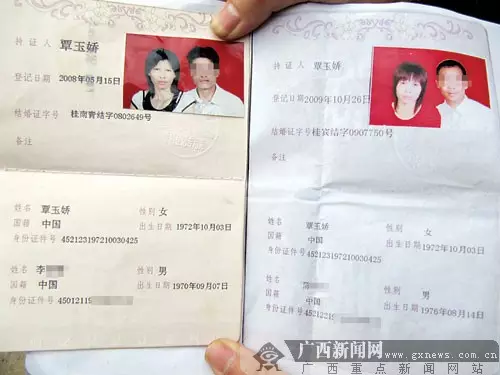 持证人 覃玉娇
登记日期 2008年05月15日
结婚证字号 桂南青结字0802649号
备注
姓名 覃玉娇 性别 女
国籍 中国 出生日期 1972年10月03日
身份证件号 452123197210030425
姓名 李 性别 男
国籍 中国 出生日期 1970年09月07日
身份证件号 45012119
持证人 覃玉娇
登记日期 2009年10月26日
结婚证字号 桂宾结字0907750号
备注
姓名 覃玉娇 性别 女
国籍 中国 出生日期 1972年10月03日
身份证件号 452123197210030425
姓名 性别 男
国籍 中国 出生日期 1976年08月14日
身份证件号 45212319
广西新闻网 www.gxnews.com.cn
广西重点新闻网站